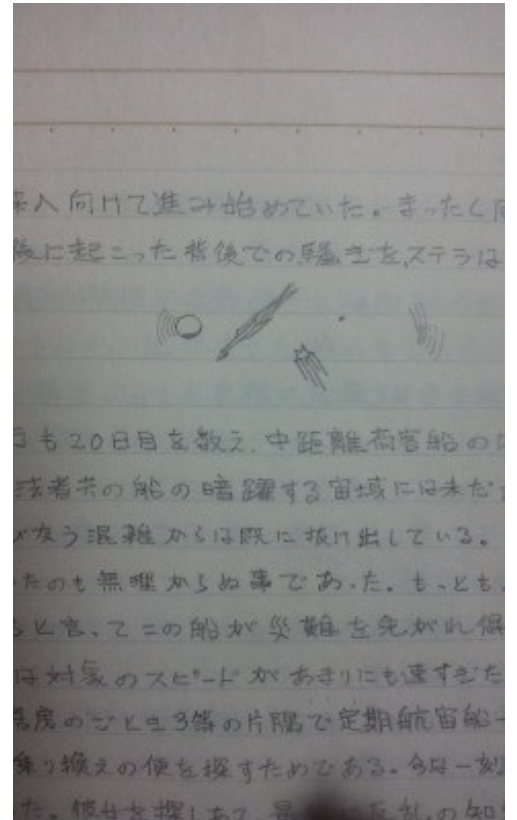 来へ向けて進み始めていた。まったく
後に起こった背後での騒ぎを、ステラは
も20日目を数え、中距離荷客船の
法者共の船の暗躍する宙域には未だ
交う混雑からは既に抜け出している。
たのも無理からぬ事であった。もっとも、
ると言ってこの船が災難を免がれ得
は対象のスピードがあまりにも速すぎた
房のごとき3等の片隅で定期航宙船
乗り換えの便を探すためである。今は一刻
た。彼女を探しあて、の知